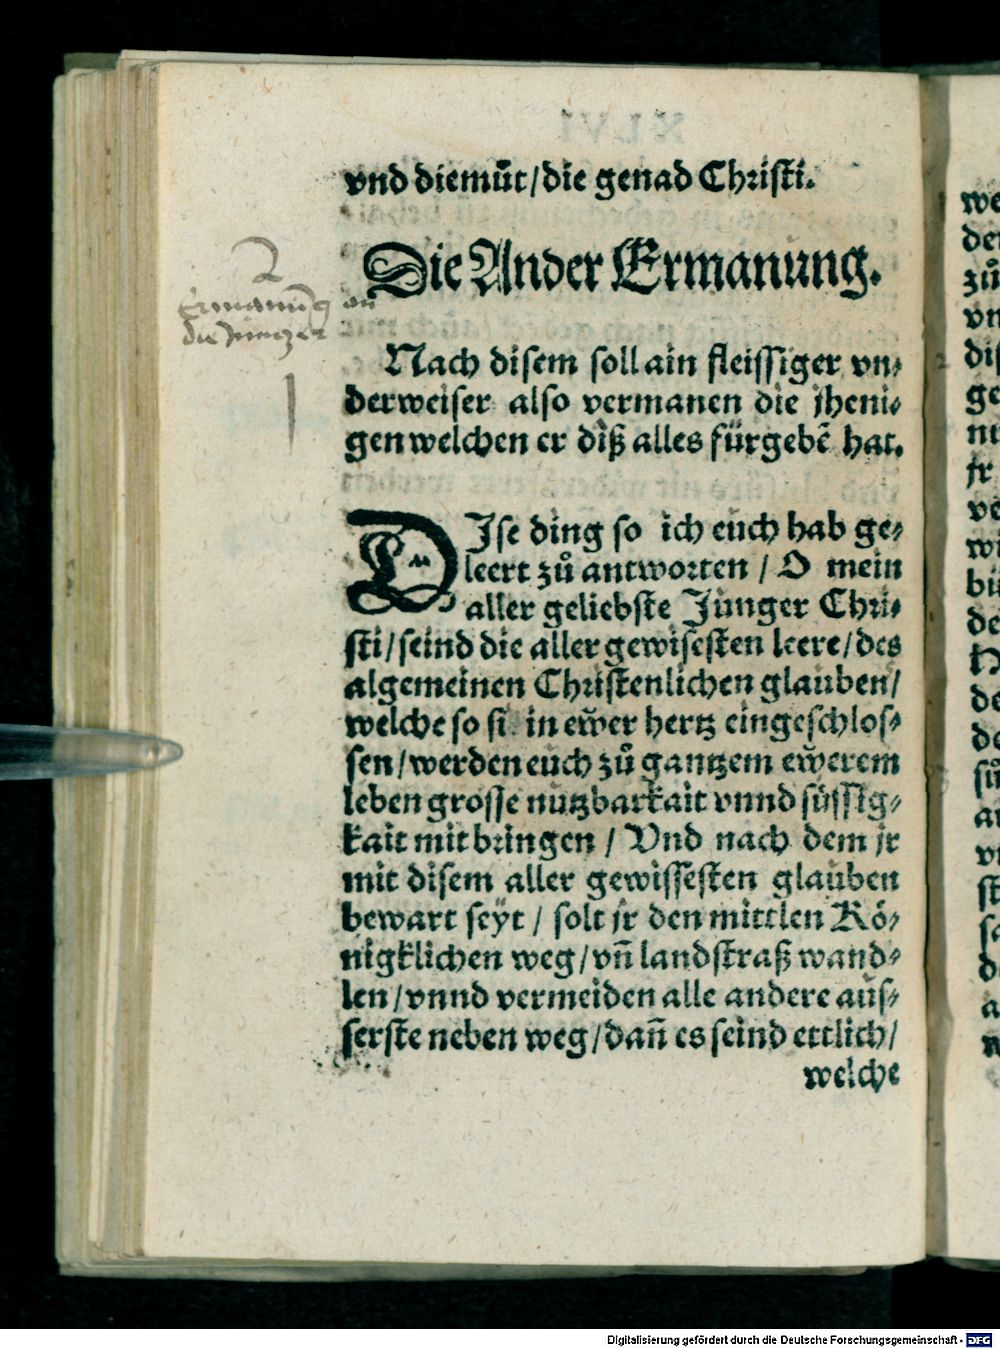 vnd diemůt/die genad Christi.
Die Ander Ermanung.
2
Ermanung an
die Junger
Nach disem soll ain fleissiger vn⸗
derweiser also vermanen die jheni⸗
gen welchen er diß alles fürgebē hat.
DIse ding so ich euch hab ge⸗
leert zů antworten / O mein
aller geliebste Junger Chri⸗
sti/seind die aller gewisesten leere/des
algemeinen Christenlichen glauben/
welche so si in ew̃er hertz eingeschlos⸗
sen/werden euch zů gantzem ew̃erem
leben grosse nutzbarkait vnnd süssig⸗
kait mit bringen / Vnd nach dem jr
mit disem aller gewissesten glauben
bewart seyt / solt jr den mittlen Kö⸗
nigklichen weg/vn̄ landstraß wand⸗
len/vnnd vermeiden alle andere aus⸗
serste neben weg/dan̄ es seind ettlich/
welche
Digitalisierung gefördert durch die Deutsche Forschungsgemeinschaft - DFG